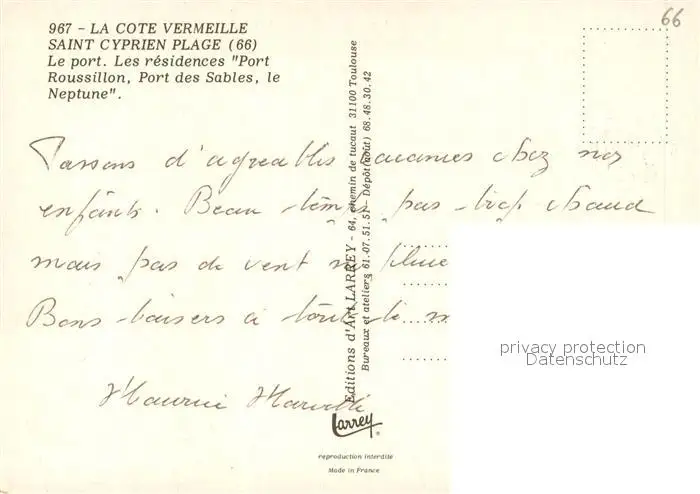 967 - LA COTE VERMEILLE
SAINT CYPRIEN PLAGE (66)
Le port. Les résidences "Port
Roussillon, Port des Sables, le
Neptune".
66
Editions d'Art LARREY - 64, chemin de tucaut 31100 Toulouse
Bureaux et ateliers 61.07.51.51 - Dépôt (août) 68.48.30.42
Passons d'agreables vacances chez nos
enfants. Beau temps pas trop chaud
mais pas de vent ni pluie
Bons baisers a toute la
Maurice
privacy protection
Datenschutz
Larrey
reproduction interdite
Made in France